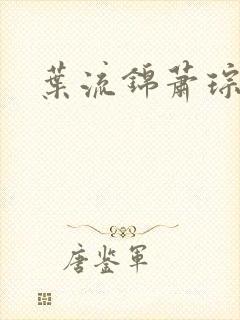 葉流錦蕭琮
唐鉴軍